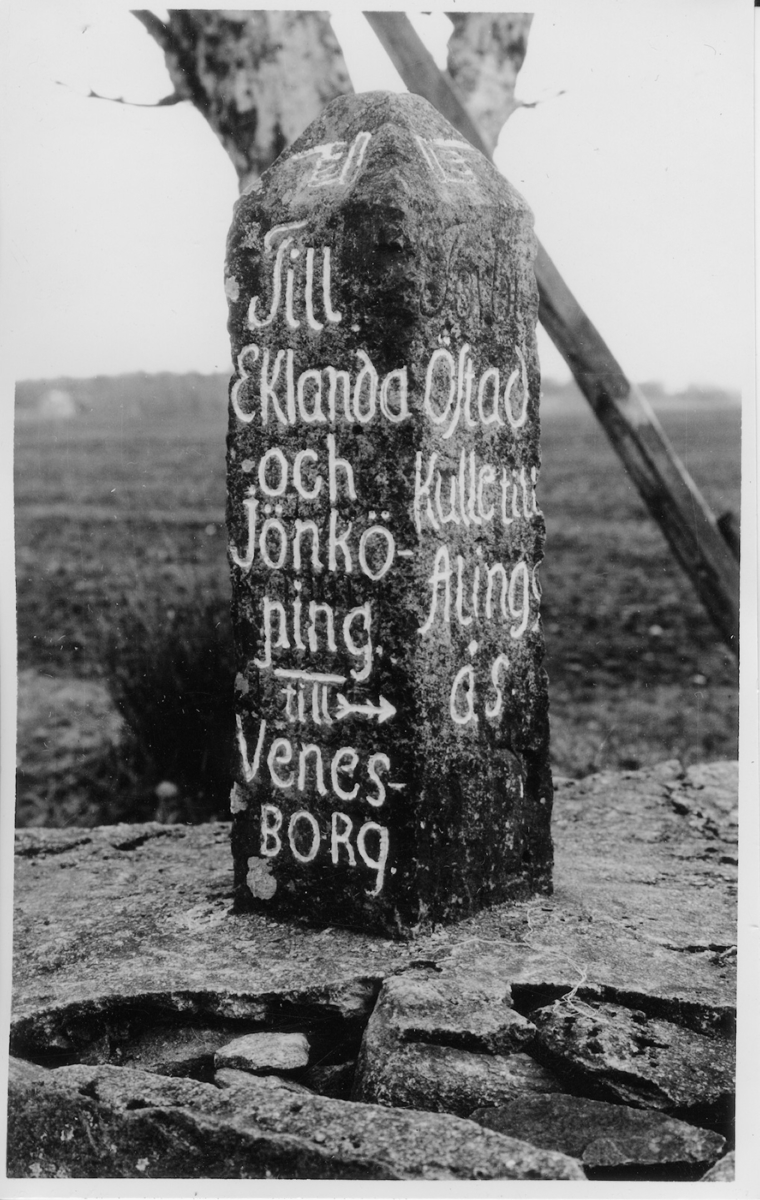 Till
Eklanda
och
Jönkö-
ping.
till
Venes-
BORg.
Östad
Kulle
Aling
ås